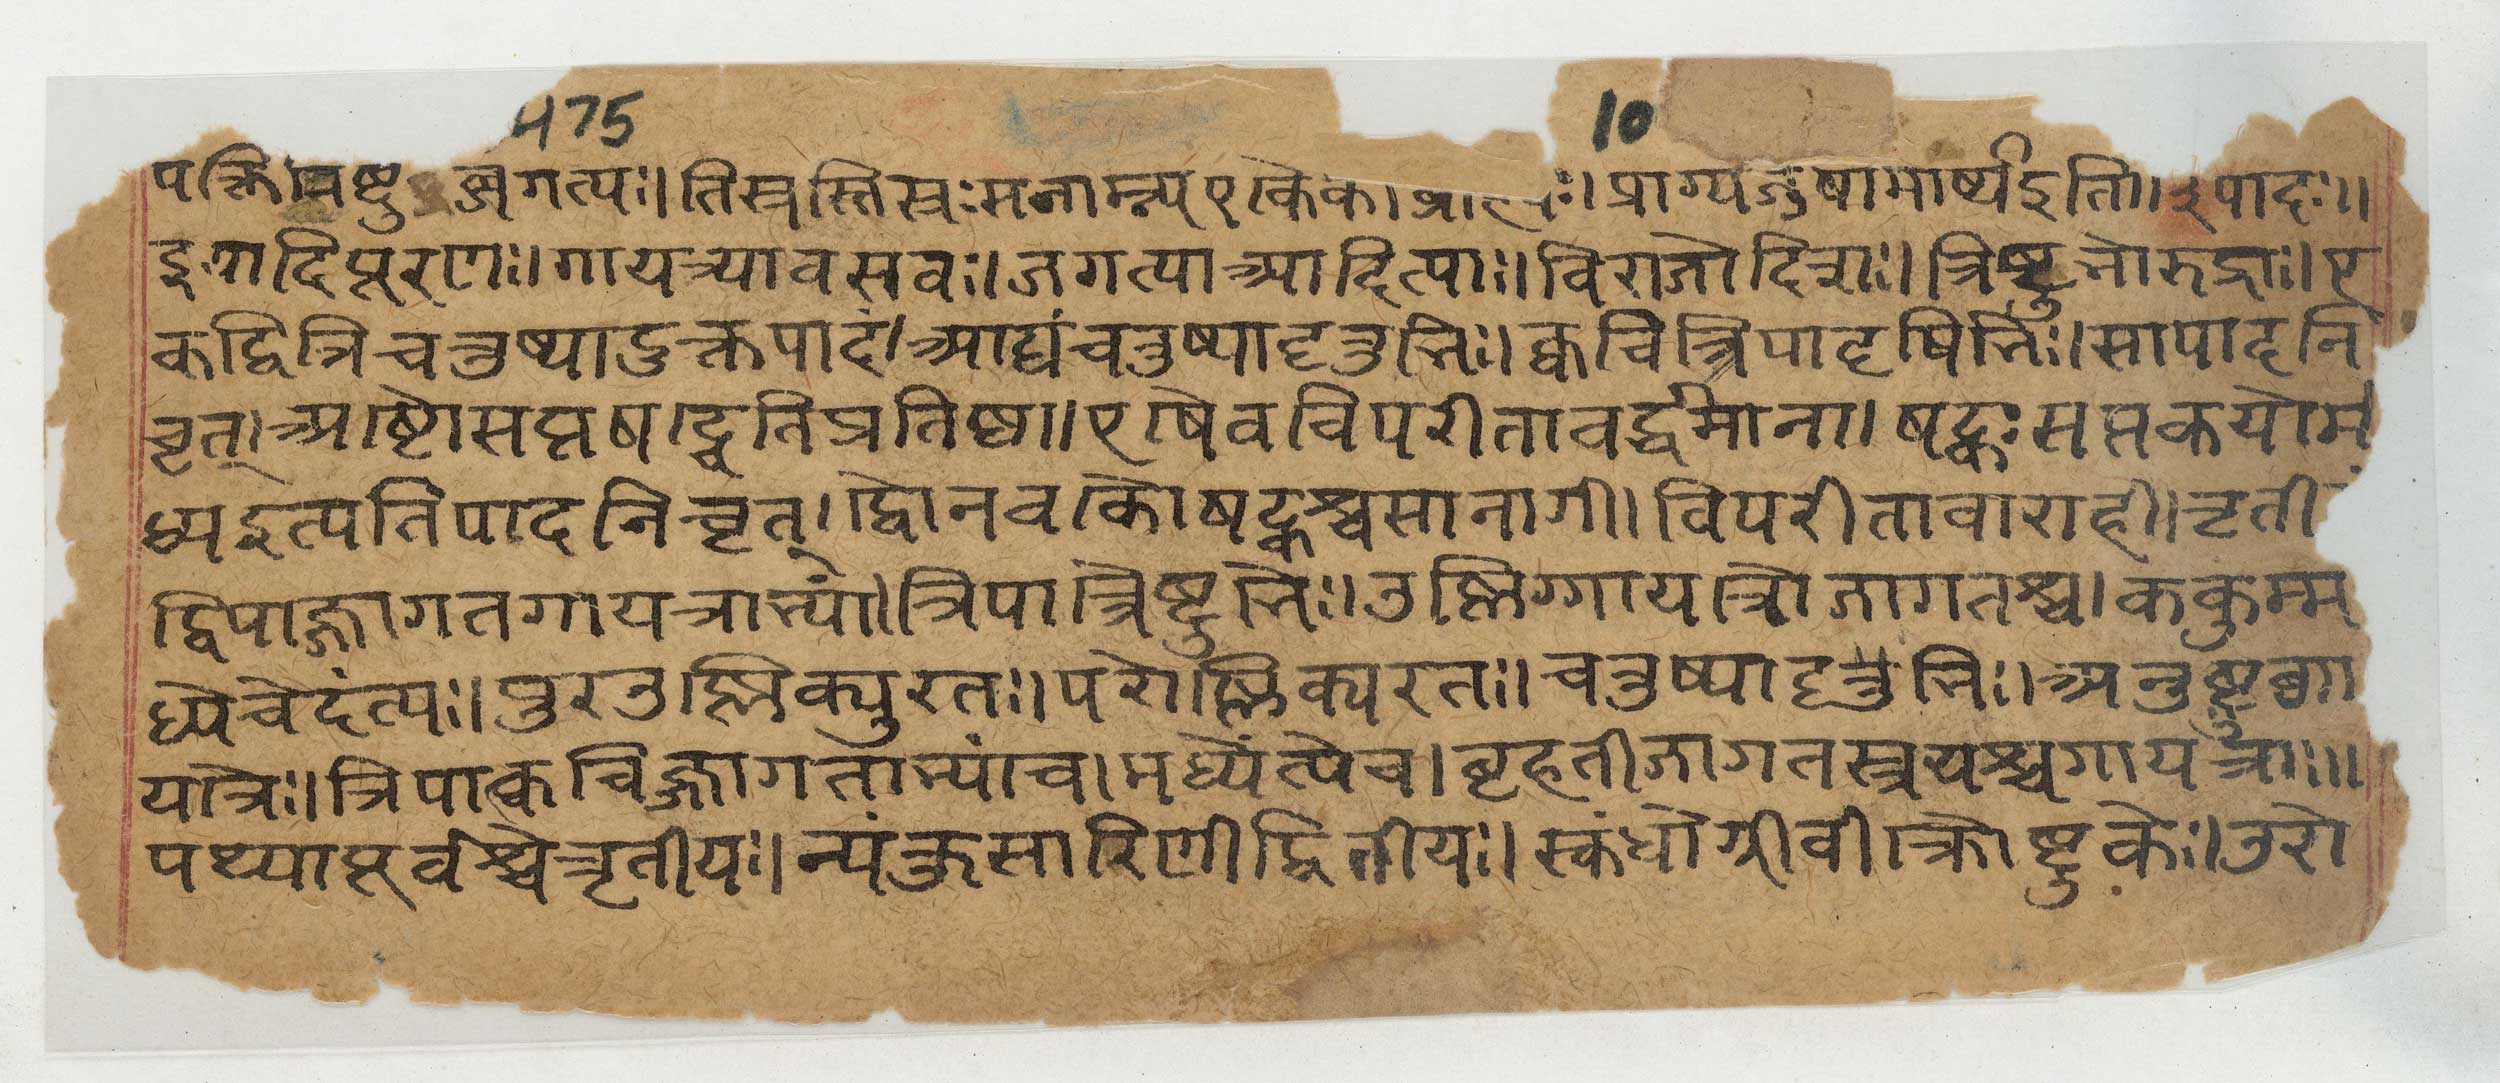 475 10
पङ्क्तित्रिष्टुब्जगत्यः।। तिस्रस्तिस्रः सनाम्न्य एकैका ब्राह्म्यः।। प्राग्यजुषामार्ष्य इति।। पादः।।
इआदिपूरणः।। गायत्र्या वसवः।। जगत्या आदित्याः।। विराजो दिशः।। त्रिष्टुभो रुद्राः।। ए
कद्वित्रिचतुष्पादुक्तपादं। आद्यं चतुष्पादृतुभिः।। क्वचित्त्रिपादृषिभिः।। सा पादनि
चृत्। अष्टौ सप्त षड्भिति प्रतिष्ठा।। एषैव विपरीता वर्द्धमाना। षट्कः सप्तकयोर्म
ध्य इत्यतिपादनिचृत्। द्वौ नवकौ षट्कश्च सा नागी। विपरीता वाराही। तृती
द्विपाज्जागतगायत्राभ्यां।। त्रिपात्त्रैष्टुभैः।। उष्णिग्गायत्रौ जागतश्च। ककुम्म
ध्ये चेदंत्यः।। पुर उष्णिक्पुरतः।। परोष्णिक्परतः।। चतुष्पादृतुभिः।। अनुष्टुब्गा
यत्रैः।। त्रिपात्क्वचिज्जागताभ्यां च। मध्येंत्ये च। बृहती जागतस्त्रयश्च गायत्राः।।
पथ्या पूर्वश्चेत्तृतीयः। न्यंकुसारिणी द्वितीयः। स्कंधोग्रीवी क्रौष्टुकेः।। उरो